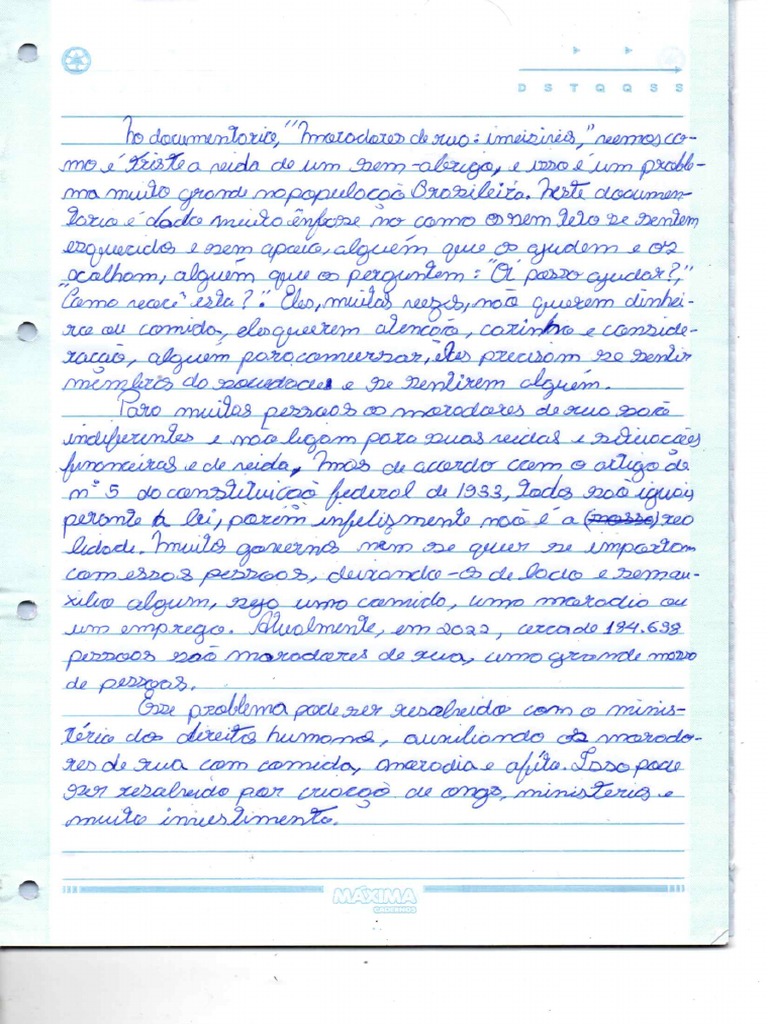 D S T Q Q S S
No documentario, "Moradores de rua: imvisiveis," vemos co-
mo é triste a vida de um sem-abrigo, e isso é um proble-
ma muito grande na população Brasileira. Neste documen-
tario é dado muito ênfase no como os sem teto se sentem
esquecidos e sem apoio, alguém que os ajudem e os
acalham, alguém que os perguntem: "Oi posso ajudar?,"
"Como você esta?". Eles, muitas vezes, não querem dinhei-
ro ou comida, eles querem atenção, carinho e conside-
ração, alguém para conversar, eles precisam se sentir
membros da sociedade e se sentirem alguém.
Para muitas pessoas os moradores de rua são
indiferentes e não ligam para suas vidas e situações
financeiras e de vida, Mas de acordo com o artigo de
nº 5 da constituição federal de 1933, todos são iguais
perante a lei, porém infelizmente não é a (nossa) rea
lidade. Muitos governos nem se quer se importam
com essas pessoas, deixando-os de lado e sem au-
xilio algum, seja uma comida, uma moradia ou
um emprego. Atualmente, em 2022, cerca de 184.638
pessoas são moradores de rua, uma grande massa
de pessoas.
Esse problema pode ser resolvido com o minis-
tério dos direito humanos, auxiliando os morado-
res de rua com comida, moradia e afeto. Isso pode
ser resolvido por criação de ongs, ministerios e
muito investimento.
MÁXIMA
CADERNOS